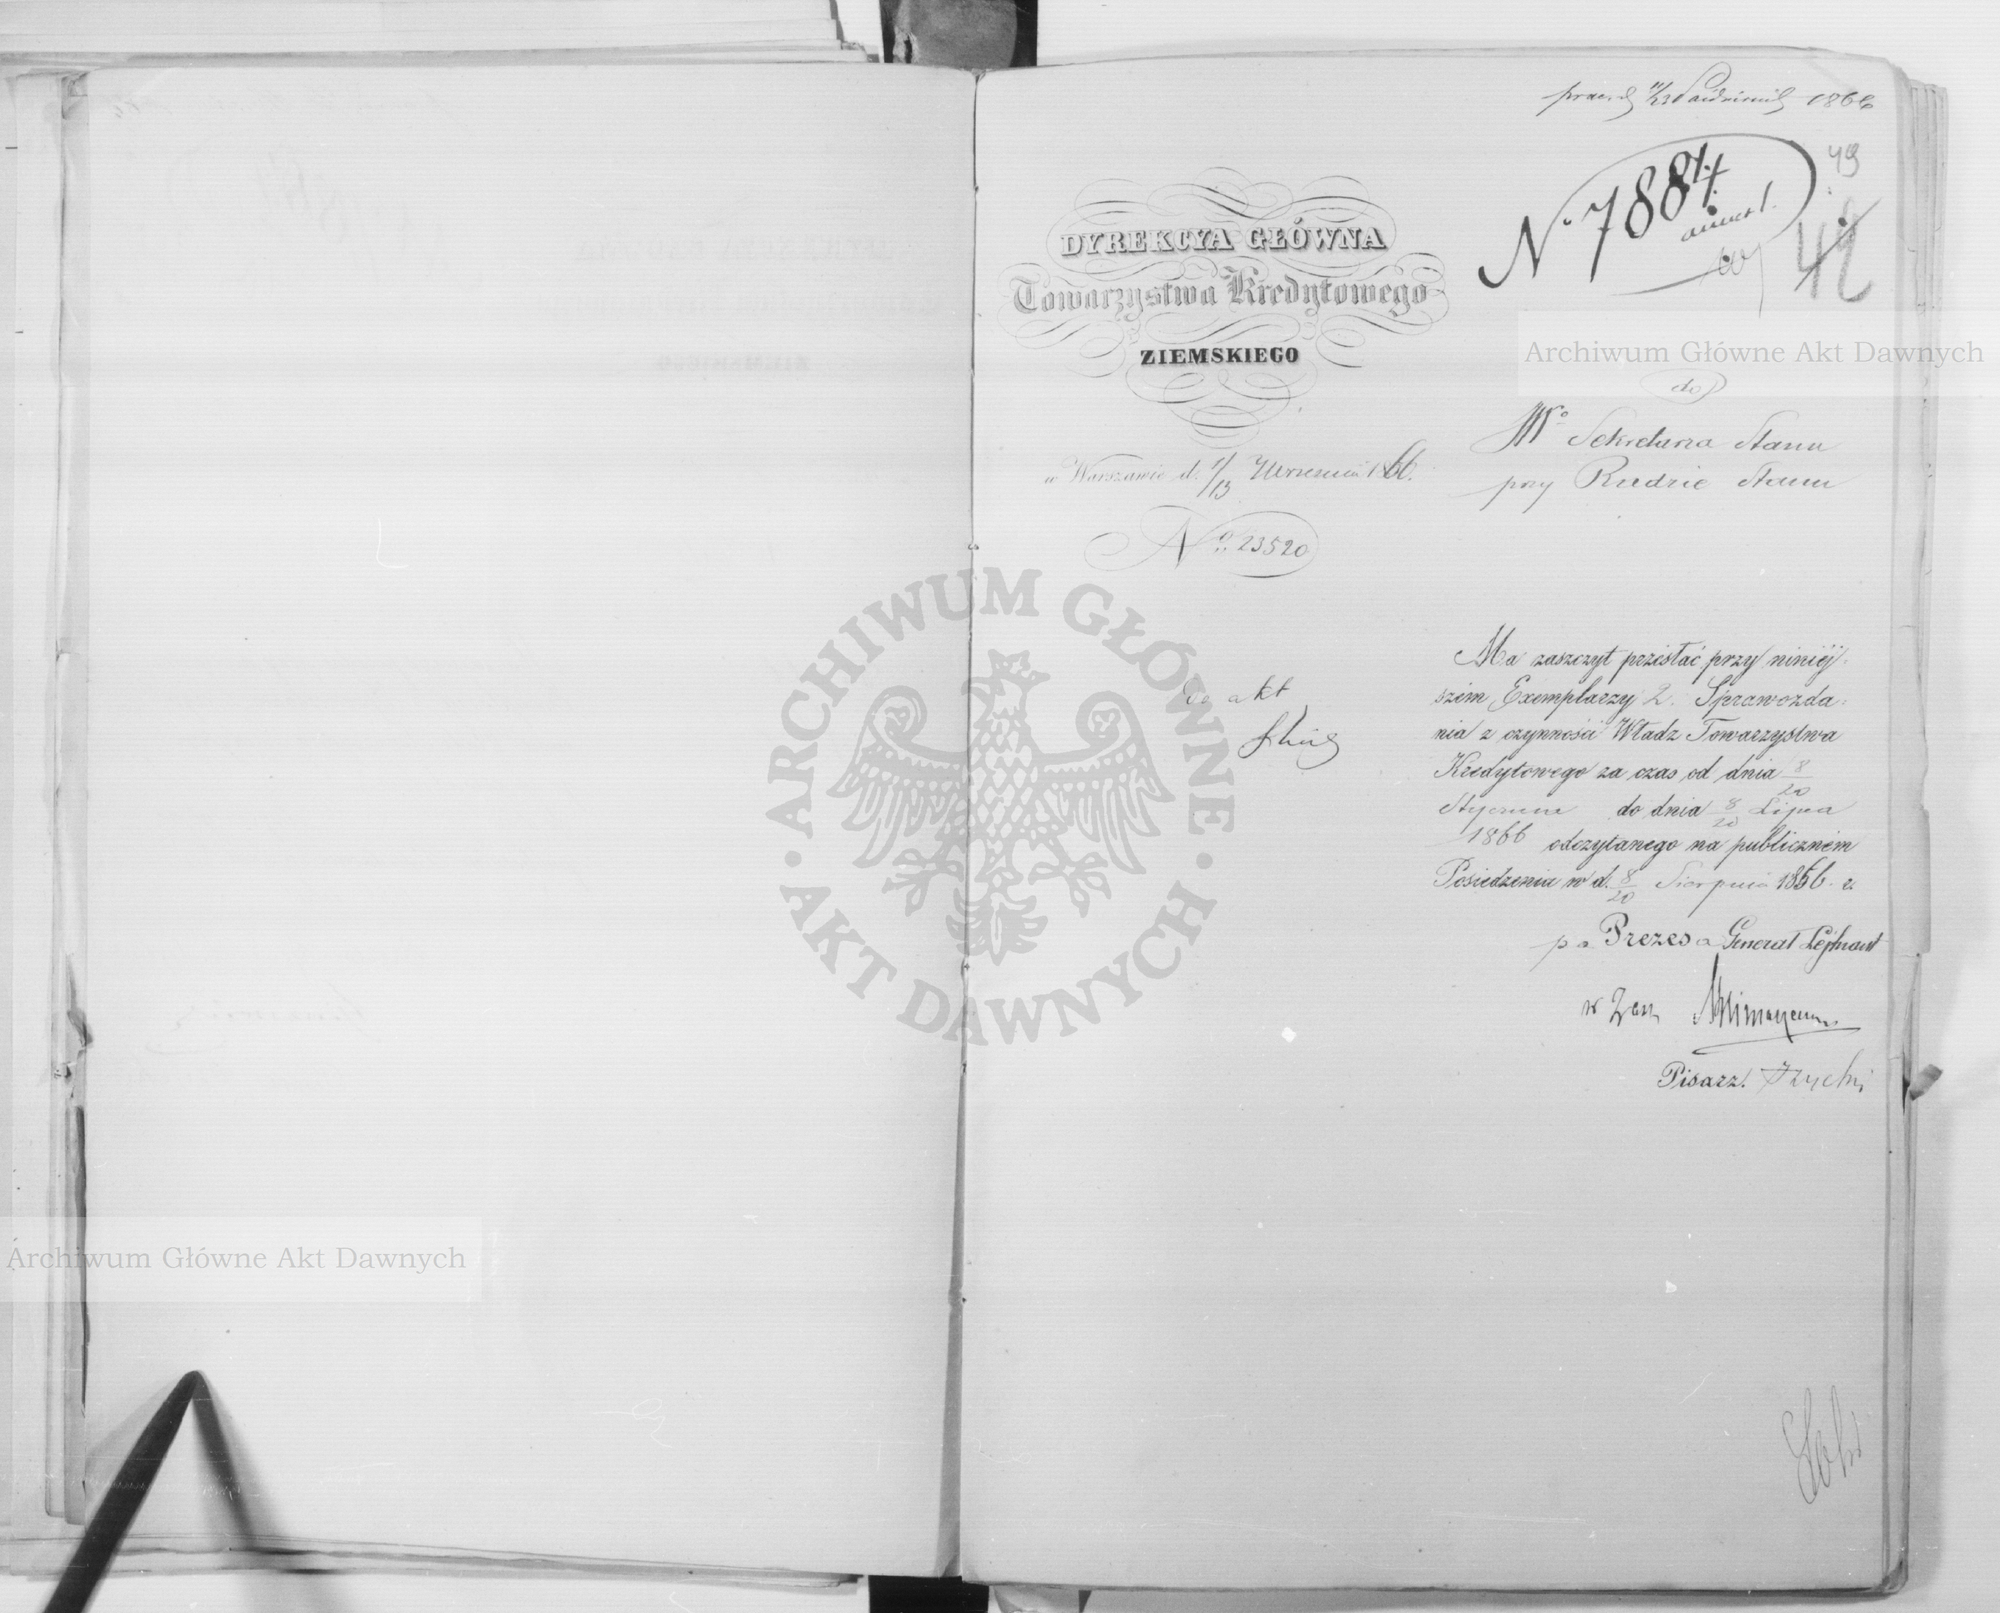 11/23 Październik 1866
N° 7884
49
42
DYREKCYA GŁÓWNA
Towarzystwa Kredytowego
ZIEMSKIEGO
Archiwum Główne Akt Dawnych
do
W° Sekretarza Stanu
przy Radzie Stanu
w Warszawie d. 1/13 Września 1866.
N° 23520
Ma zaszczyt przesłać przy niniéj-
szém Exemplarzy 2. Sprawozda-
nia z czynności Władz Towarzystwa
Kredytowego za czas od dnia 8/20
Stycznia do dnia 8/20 Lipca
1866 odczytanego na publiczném
Posiedzeniu w d. 8/20 Sierpnia 1866 r.
do akt
p. o. Prezesa Generał Lejtnant
w Zast.
Pisarz.
ARCHIWUM GŁÓWNE
AKT DAWNYCH
Archiwum Główne Akt Dawnych